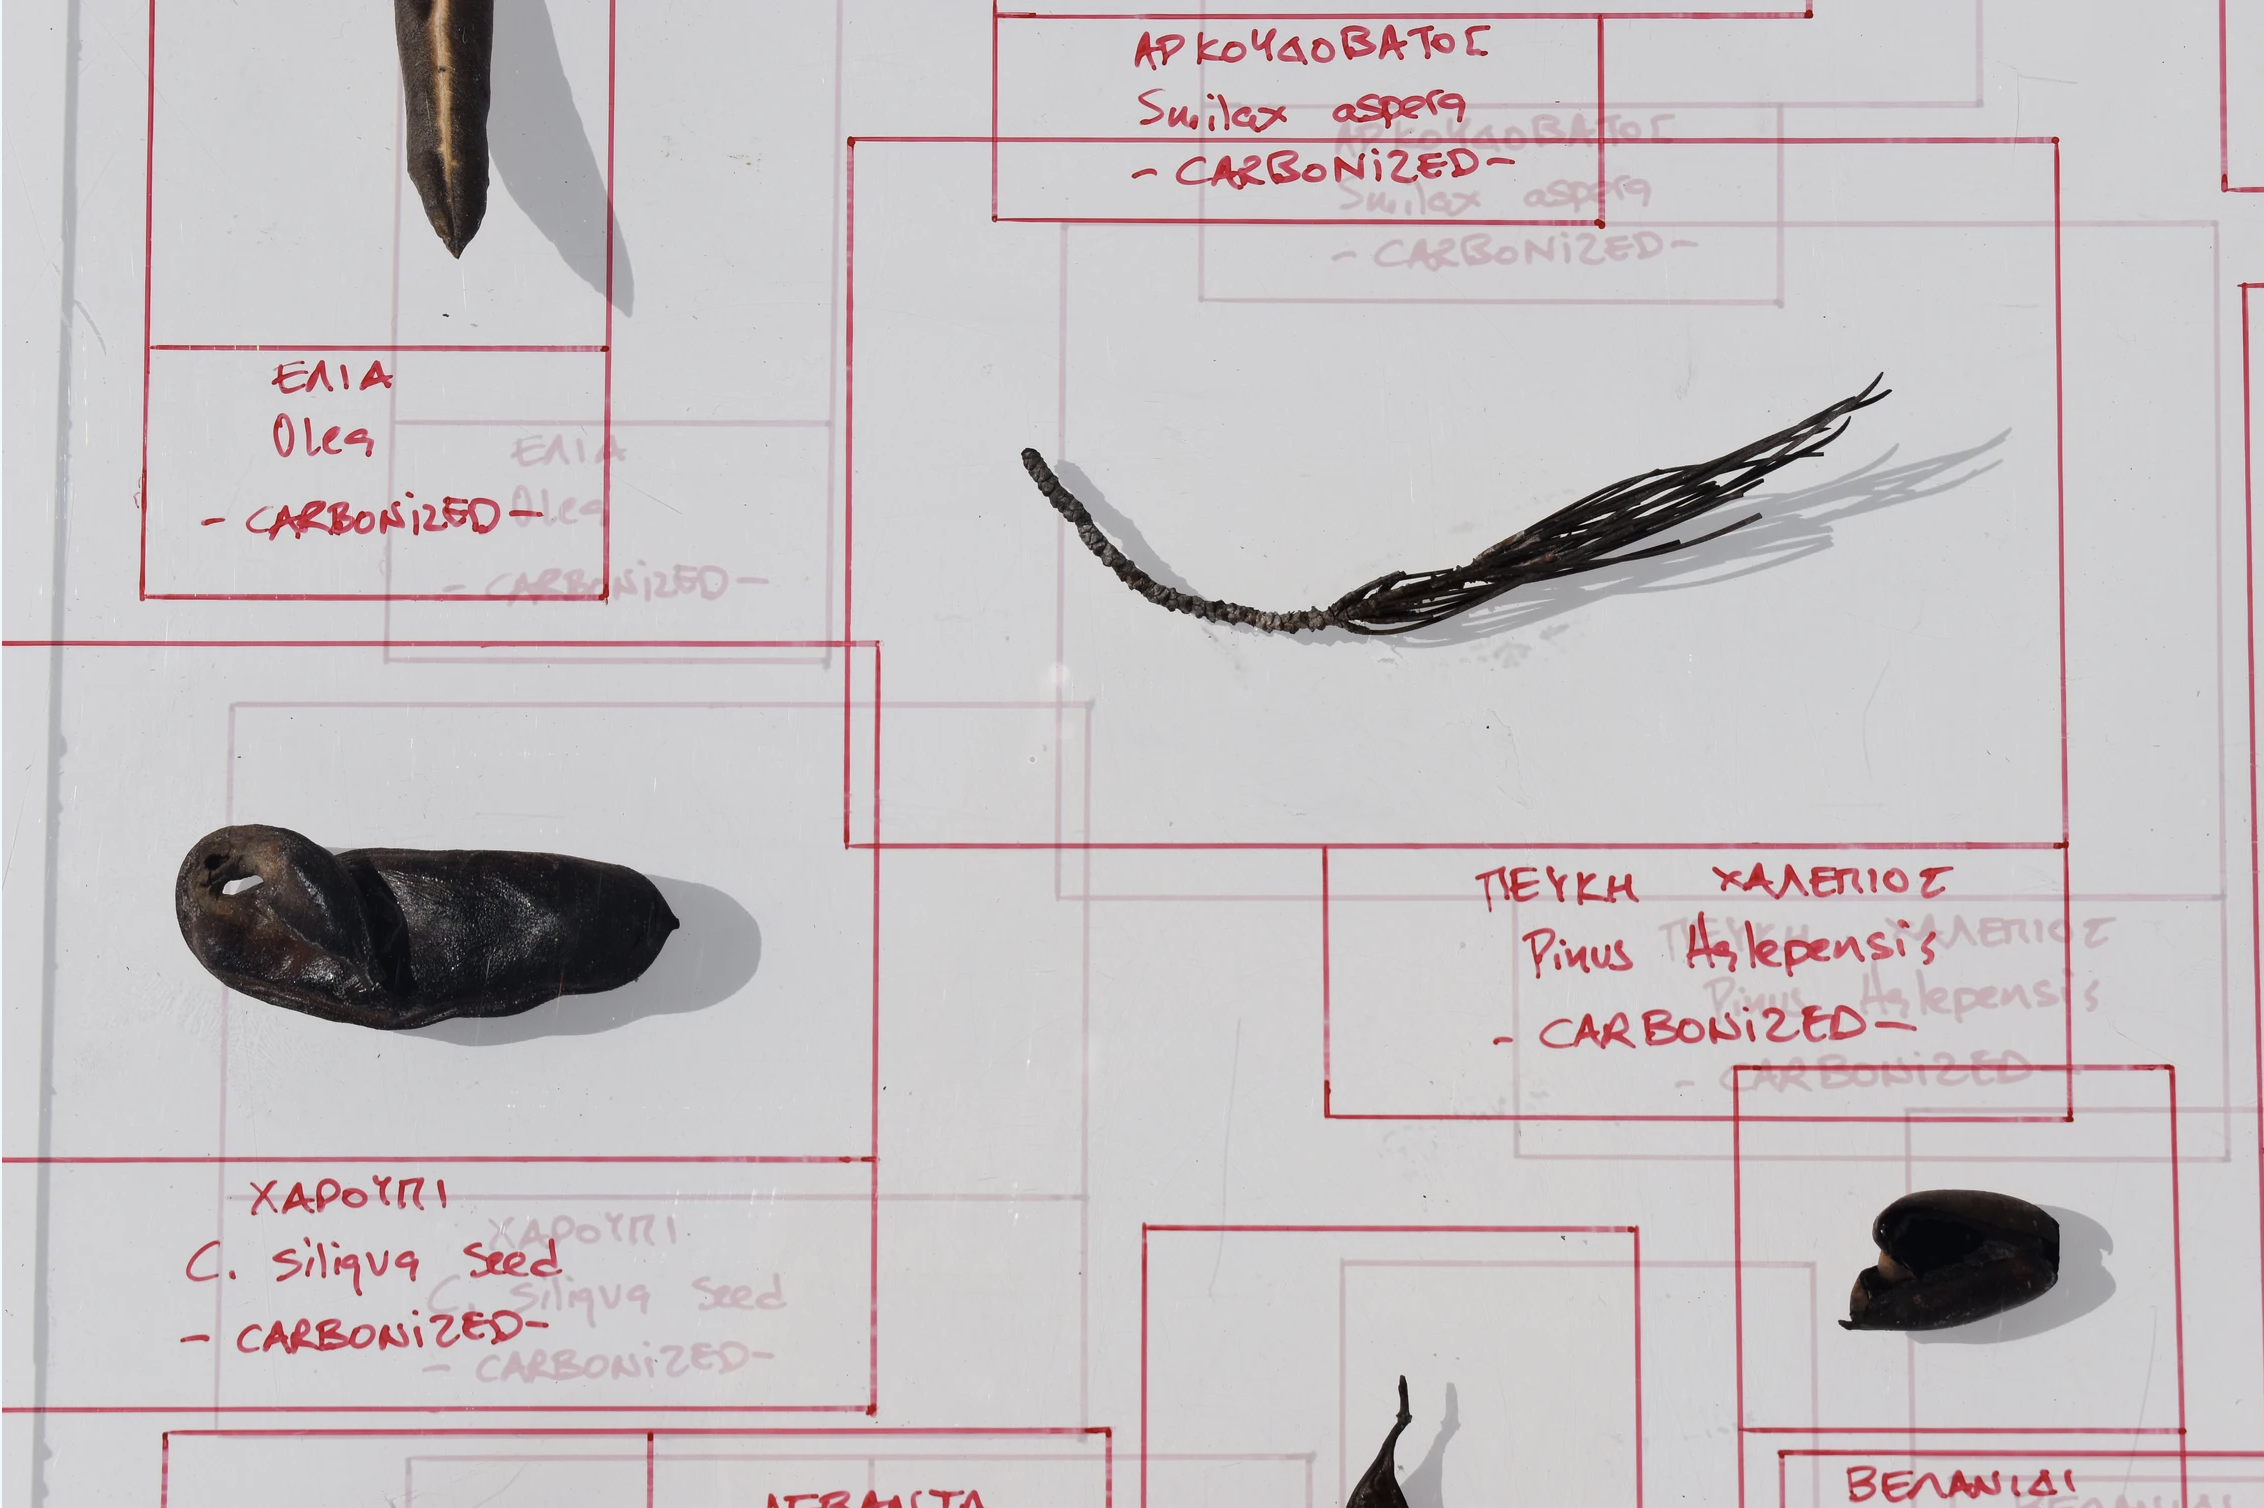 ΑΡΚΟΥΔΟΒΑΤΟΣ
Smilax aspera
- CARBONiZED -
ΕΛΙΑ
Olea
- CARBONiZED -
ΠΕΥΚΗ ΧΑΛΕΠΙΟΣ
Pinus Halepensis
- CARBONiZED -
ΧΑΡΟΥΠΙ
C. siliqua Seed
- CARBONiZED -
ΒΕΛΑΝΙΔΙ